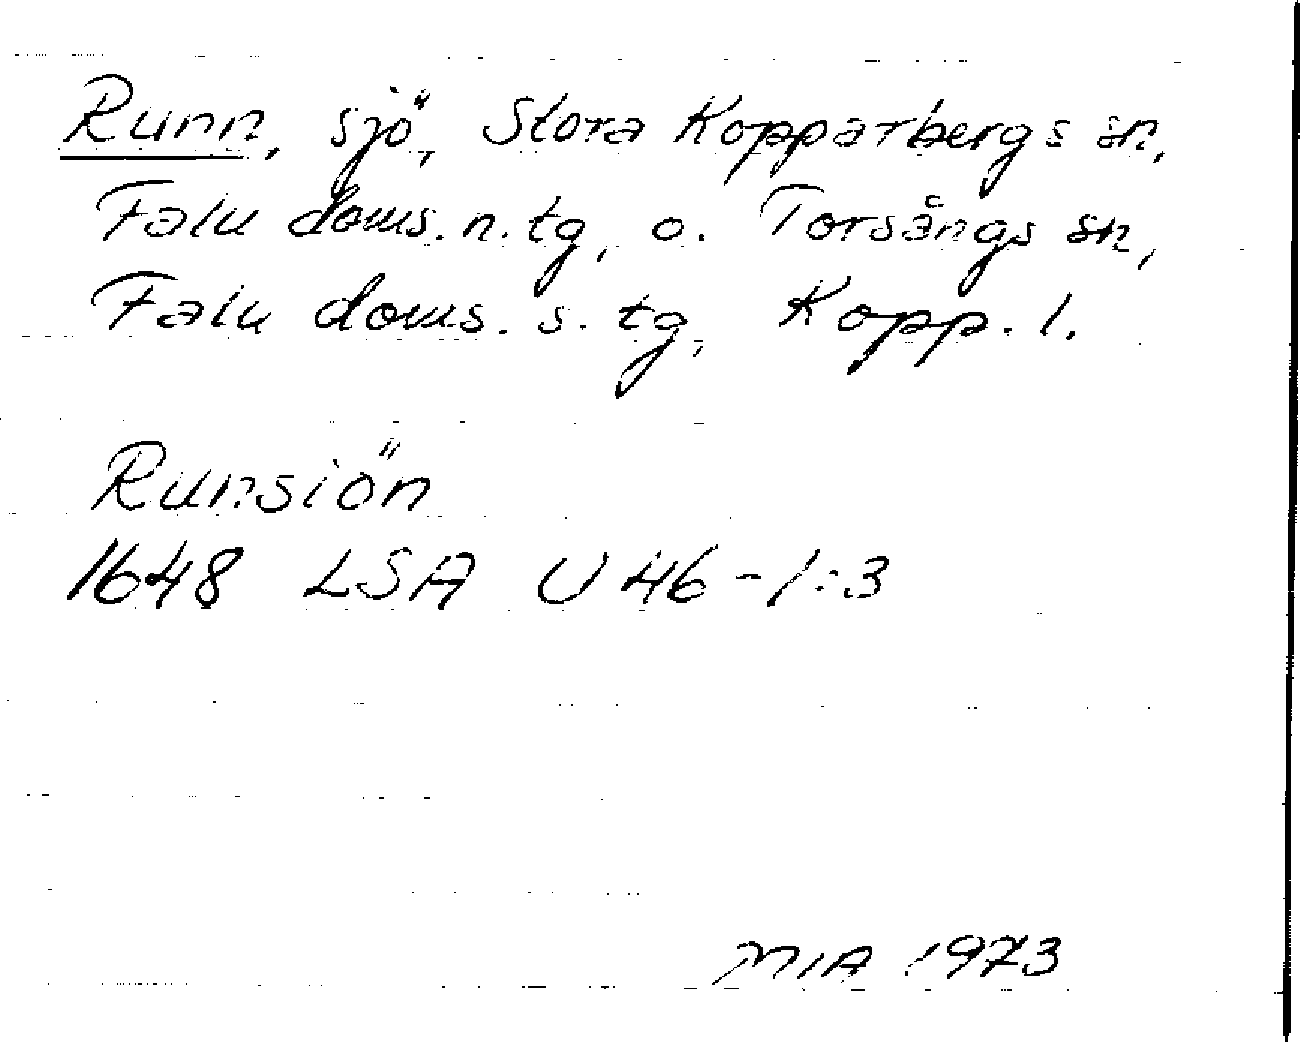 Runn, sjö, Stora Kopparbergs sn,
Falu doms. n. tg, o. Torsångs sn,
Falu doms. s. tg, Kopp. l.
Runsiön
1648 LSA U 46-1:3
MIA 1973